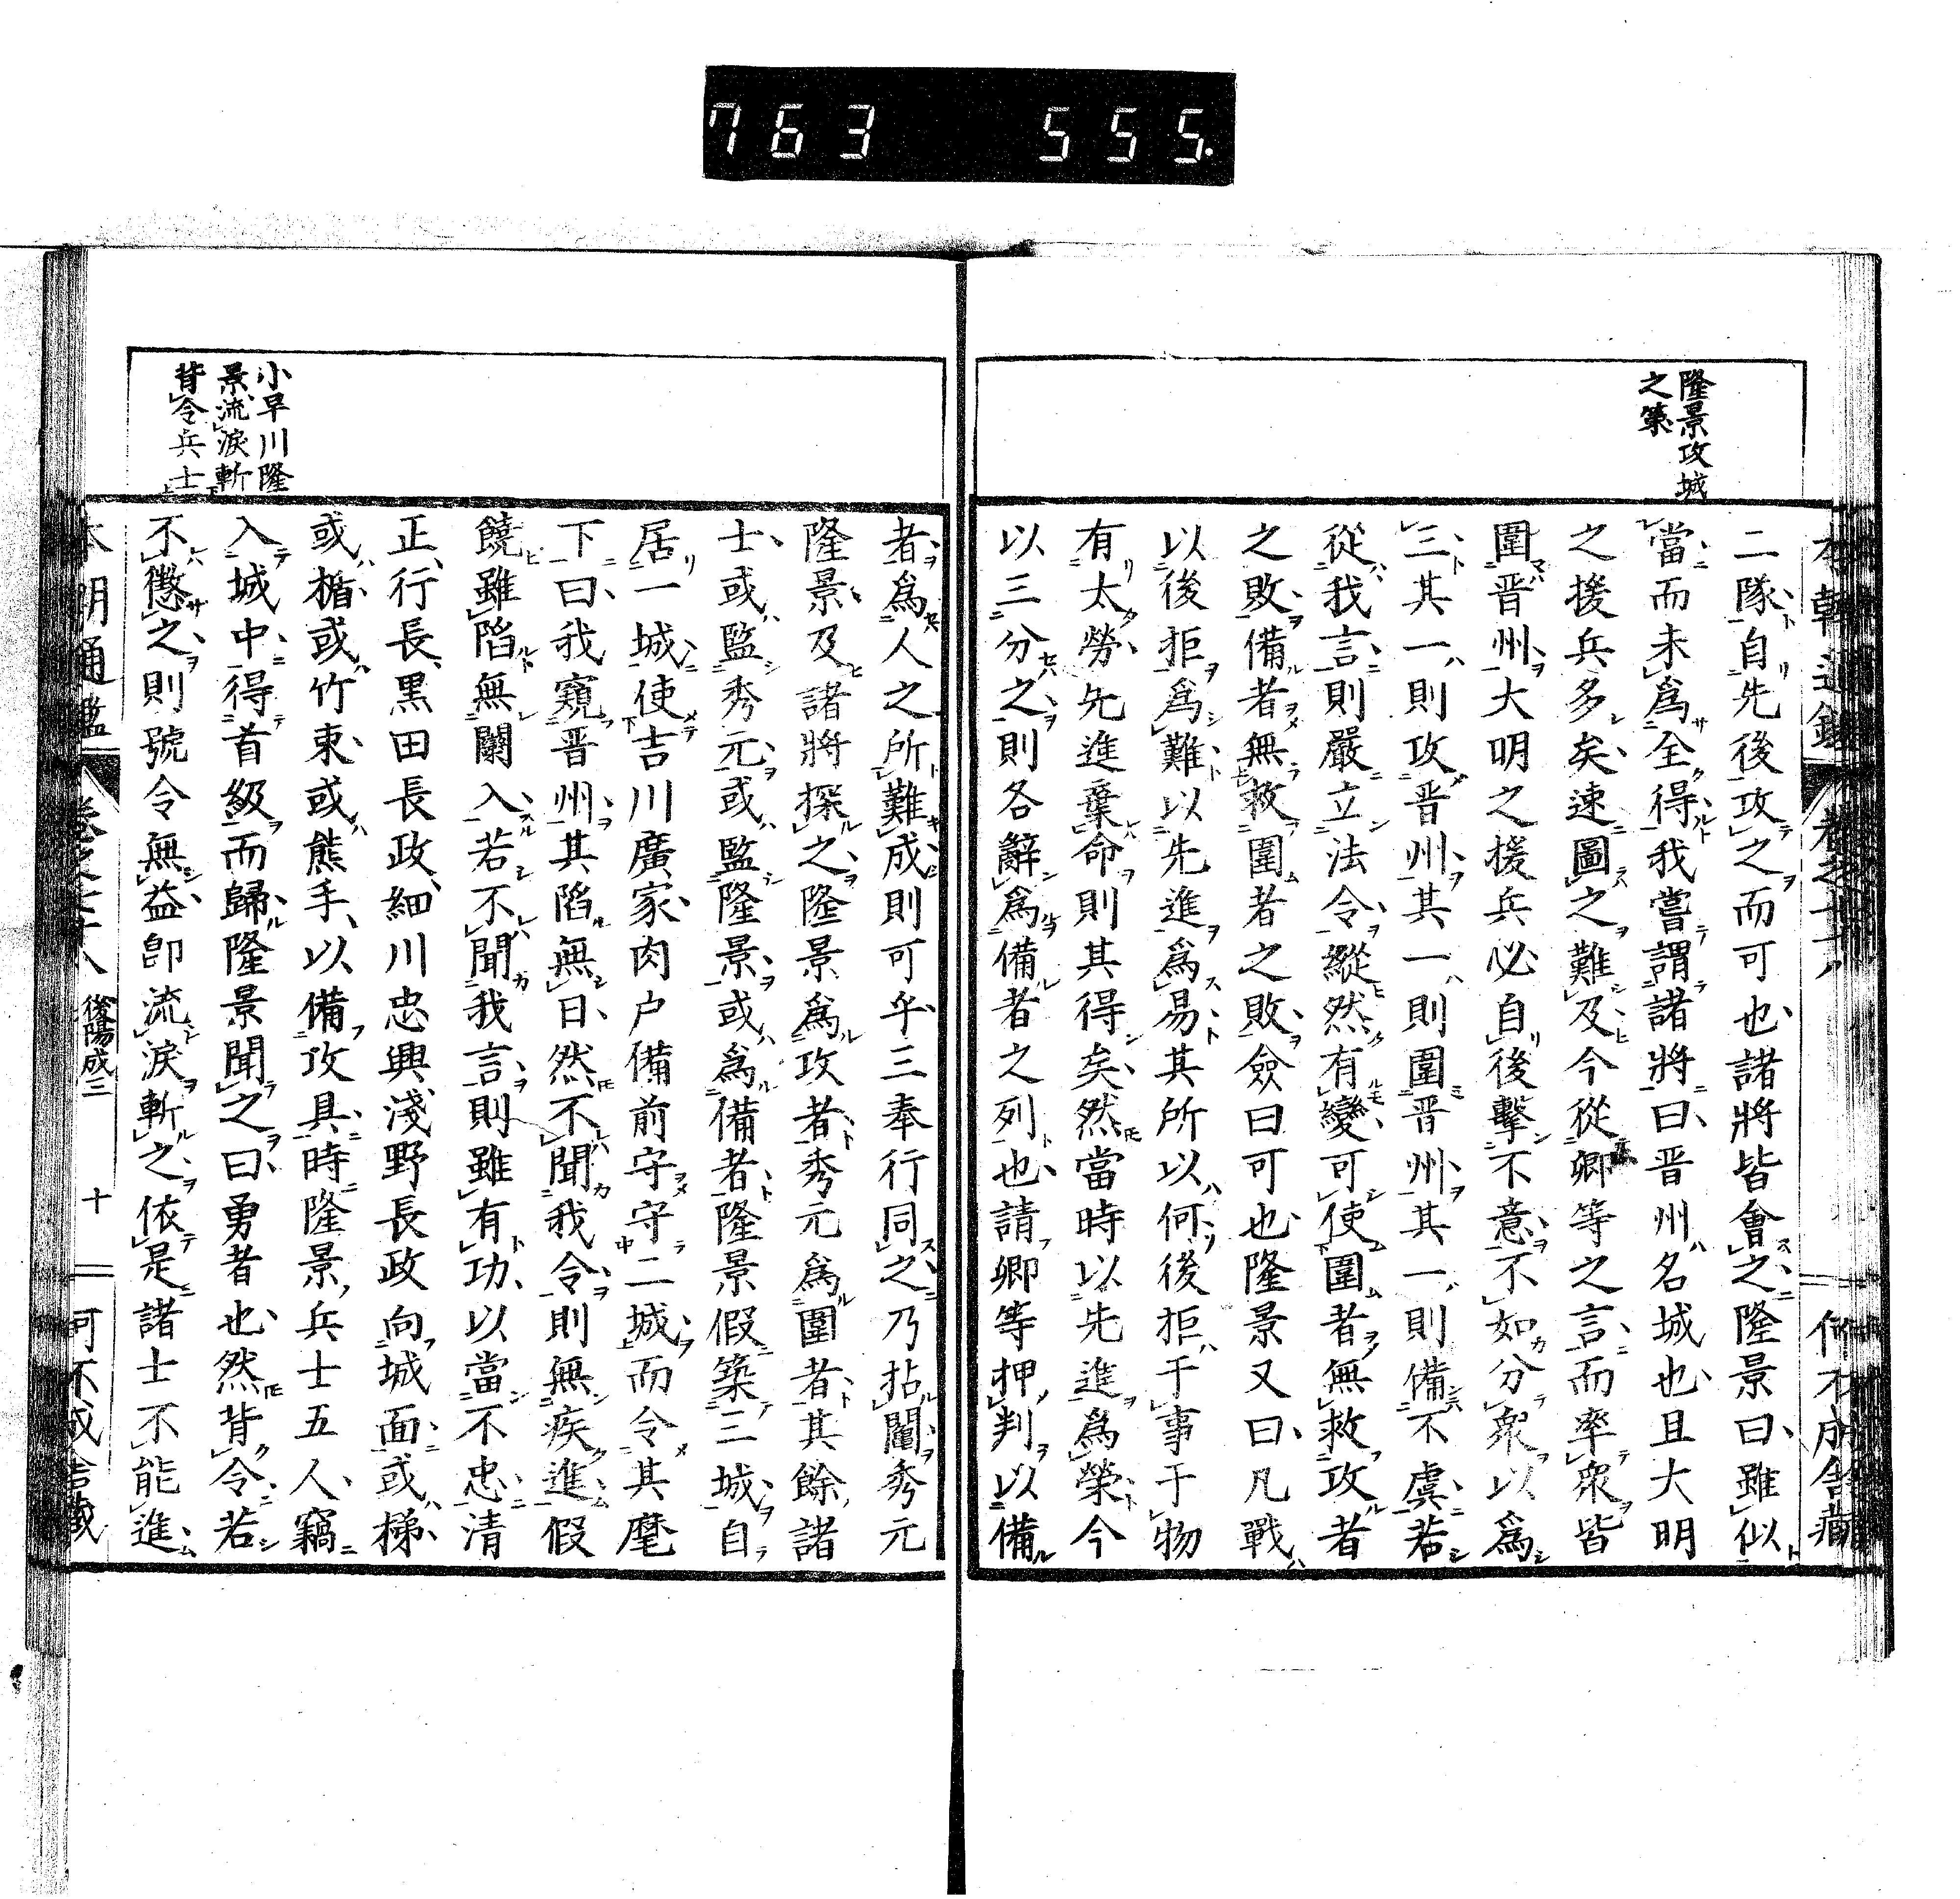 763 555.
隆景攻城
之策
二隊自先後攻之而可也諸將皆會之隆景曰雖似
當而未爲全得我嘗謂諸將曰晋州名城也且大明
之援兵多矣速圖之難及今從卿等之言而率衆皆
圍晋州大明之援兵必自後擊不意不如分衆以爲
三其一則攻晋州其一則圍晋州其一則備不虞若
從我言則嚴立法令縱然有變可使圍者無救攻者
之敗備者無救圍者之敗僉曰可也隆景又曰凡戰
以後拒爲難以先進爲易其所以何後拒干事干物
有太勞先進棄命則其得矣然當時以先進爲榮今
以三分之則各辭爲備者之列也請卿等押判以備
者爲人之所難成則可乎三奉行同之乃拈鬮秀元
隆景及諸將探之隆景爲攻者秀元爲圍者其餘諸
士或監秀元或監隆景或爲備者隆景假築三城自
居一城使吉川廣家肉户備前守守二城而令其麾
下曰我窺晋州其陷無日然不聞我令則無疾進假
饒雖陷無闌入若不聞我言則雖有功以當不忠清
正行長黑田長政細川忠興淺野長政向城面或梯
或楯或竹束或熊手以備攻具時隆景兵士五人竊
入城中得首級而歸隆景聞之曰勇者也然背令若
不懲之則號令無益卽流淚斬之依是諸士不能進
小早川隆
景流淚斬
背令兵士
本朝通鑑
後陽成三
十